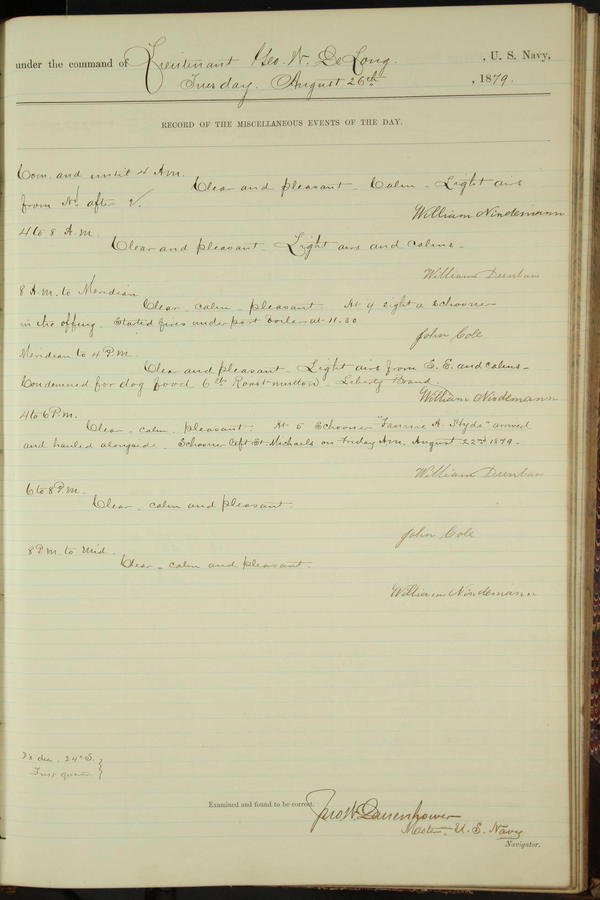 under the command of Lieutenant Geo. W. De Long, U. S. Navy,
Tuesday. August 26th, 1879.
RECORD OF THE MISCELLANEOUS EVENTS OF THE DAY.
Com. and until 4 A.m.
Clear and pleasant - Calm - Light airs
from Nd. after 2.
William Nindemann
4 to 8 A.m.
Clear and pleasant - Light airs and calms -
William Dunbar
8 A.m. to Meridian
Clear - calm - pleasant At 9 sight a Schooner
in the offing. Started fires under port boiler at 11.30
John Cole
Meridian to 4 P.M.
Clear and pleasant - Light airs from S. E. and calms -
Condemned for dog food 6 lb Roast mutton - Liberty Brand.
William Nindemann
4 to 6 P.m.
Clear - calm - pleasant. At 5 Schooner "Fannie A. Hyde" arrived
and hauled alongside. Schooner left St. Michaels on Friday A.m. August 22nd 1879.
William Dunbar
6 to 8 P.M.
Clear - calm and pleasant
John Cole
8 P.m. to Mid.
Clear - calm and pleasant.
William Nindemann
dec. 24° S.
First quar
Examined and found to be correct.
Jno. W. Danenhower
Master, U. S. Navy
Navigator.